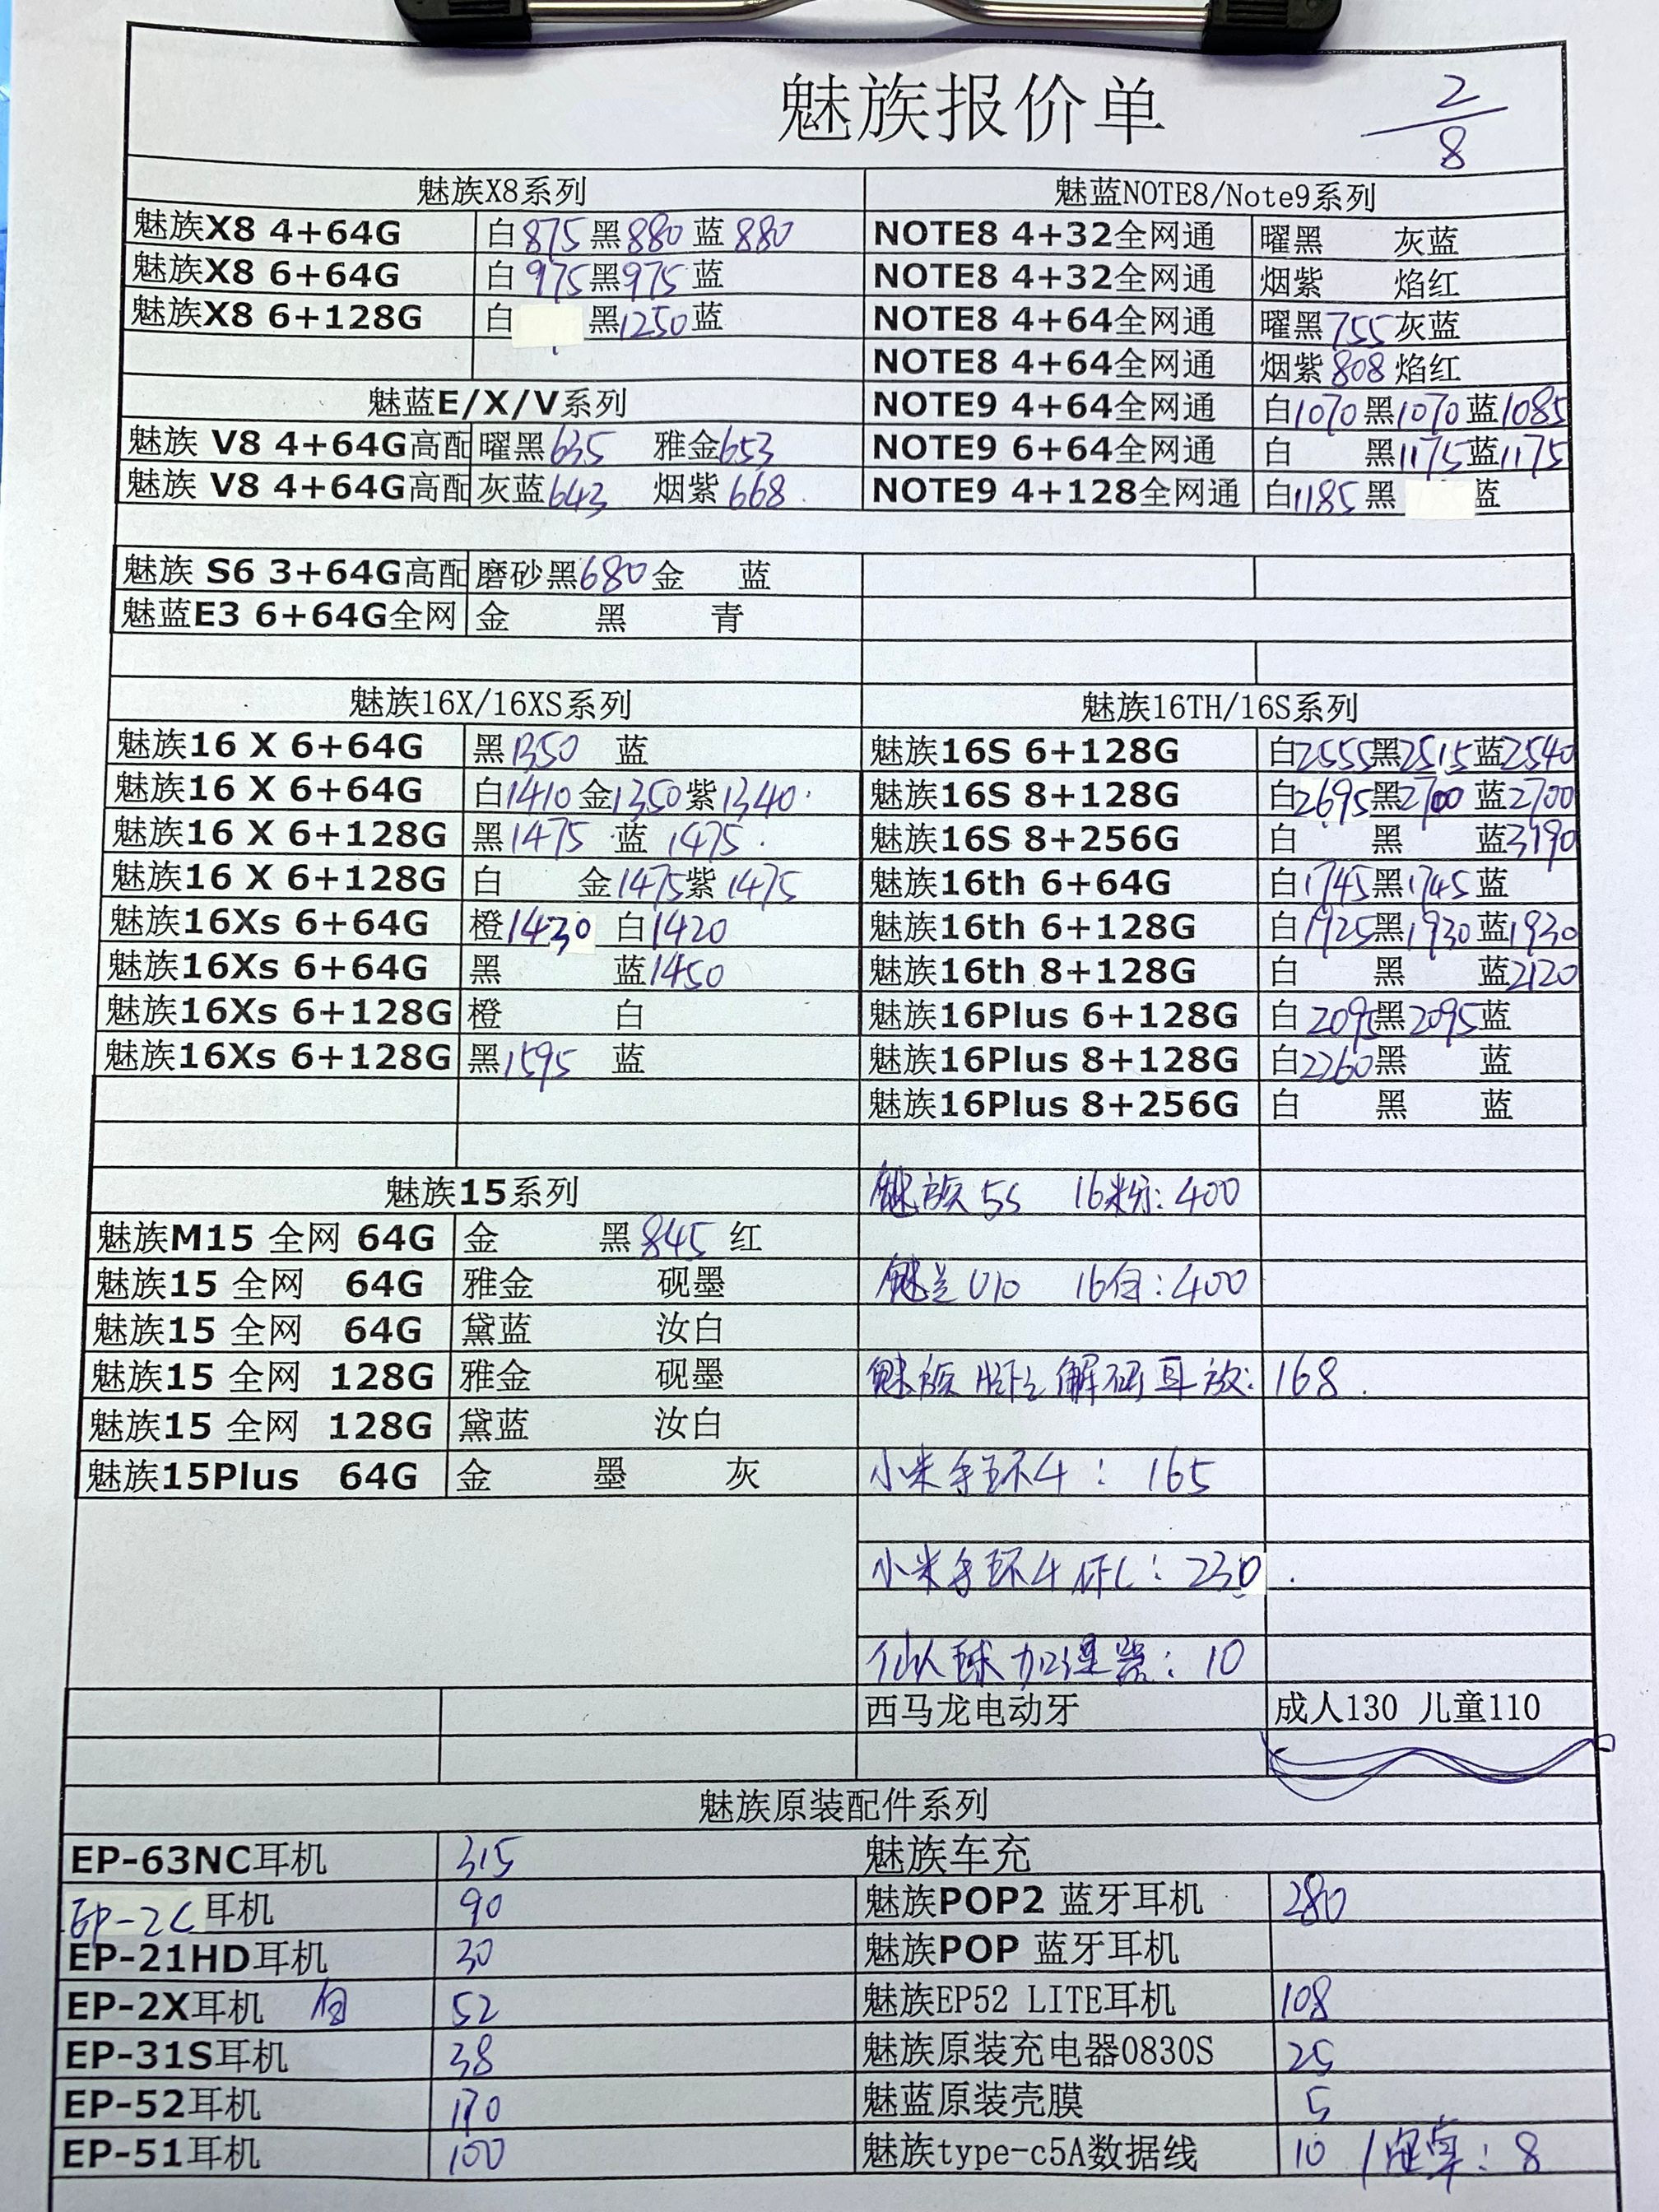 魅族报价单
2/8
魅族X8系列 魅蓝NOTE8/Note9系列
魅族X8 4+64G 白875 黑880 蓝880 NOTE8 4+32全网通 曜黑 灰蓝
魅族X8 6+64G 白975 黑975 蓝 NOTE8 4+32全网通 烟紫 焰红
魅族X8 6+128G 白 黑1250 蓝 NOTE8 4+64全网通 曜黑755 灰蓝
NOTE8 4+64全网通 烟紫808 焰红
魅蓝E/X/V系列 NOTE9 4+64全网通 白1070 黑1070 蓝1085
魅族 V8 4+64G高配 曜黑635 雅金653 NOTE9 6+64全网通 白 黑1175 蓝1175
魅族 V8 4+64G高配 灰蓝643 烟紫668 NOTE9 4+128全网通 白1185 黑 蓝
魅族 S6 3+64G高配 磨砂黑680 金 蓝
魅蓝E3 6+64G全网 金 黑 青
魅族16X/16XS系列 魅族16TH/16S系列
魅族16 X 6+64G 黑1350 蓝 魅族16S 6+128G 白2555 黑2515 蓝2540
魅族16 X 6+64G 白1410 金1350 紫1340 魅族16S 8+128G 白2695 黑2700 蓝2700
魅族16 X 6+128G 黑1475 蓝1475 魅族16S 8+256G 白 黑 蓝3190
魅族16 X 6+128G 白 金1475 紫1475 魅族16th 6+64G 白1745 黑1745 蓝
魅族16Xs 6+64G 橙1430 白1420 魅族16th 6+128G 白1925 黑1930 蓝1930
魅族16Xs 6+64G 黑 蓝1450 魅族16th 8+128G 白 黑 蓝2120
魅族16Xs 6+128G 橙 白 魅族16Plus 6+128G 白2095 黑2095 蓝
魅族16Xs 6+128G 黑1595 蓝 魅族16Plus 8+128G 白2260 黑 蓝
魅族16Plus 8+256G 白 黑 蓝
魅族15系列 魅族5S 16粉:400
魅族M15 全网 64G 金 黑845 红
魅族15 全网 64G 雅金 砚墨 魅兰U10 16白:400
魅族15 全网 64G 黛蓝 汝白
魅族15 全网 128G 雅金 砚墨 魅族 解码耳放:168
魅族15 全网 128G 黛蓝 汝白
魅族15Plus 64G 金 墨 灰 小米手环4:165
小米手环4 :230
仙人球加湿器:10
西马龙电动牙 成人130 儿童110
魅族原装配件系列
EP-63NC耳机 315 魅族车充
EP-2C耳机 90 魅族POP2 蓝牙耳机 280
EP-21HD耳机 30 魅族POP 蓝牙耳机
EP-2X耳机 白 52 魅族EP52 LITE耳机 108
EP-31S耳机 38 魅族原装充电器0830S 25
EP-52耳机 170 魅蓝原装壳膜 5
EP-51耳机 100 魅族type-c5A数据线 10 /安卓:8